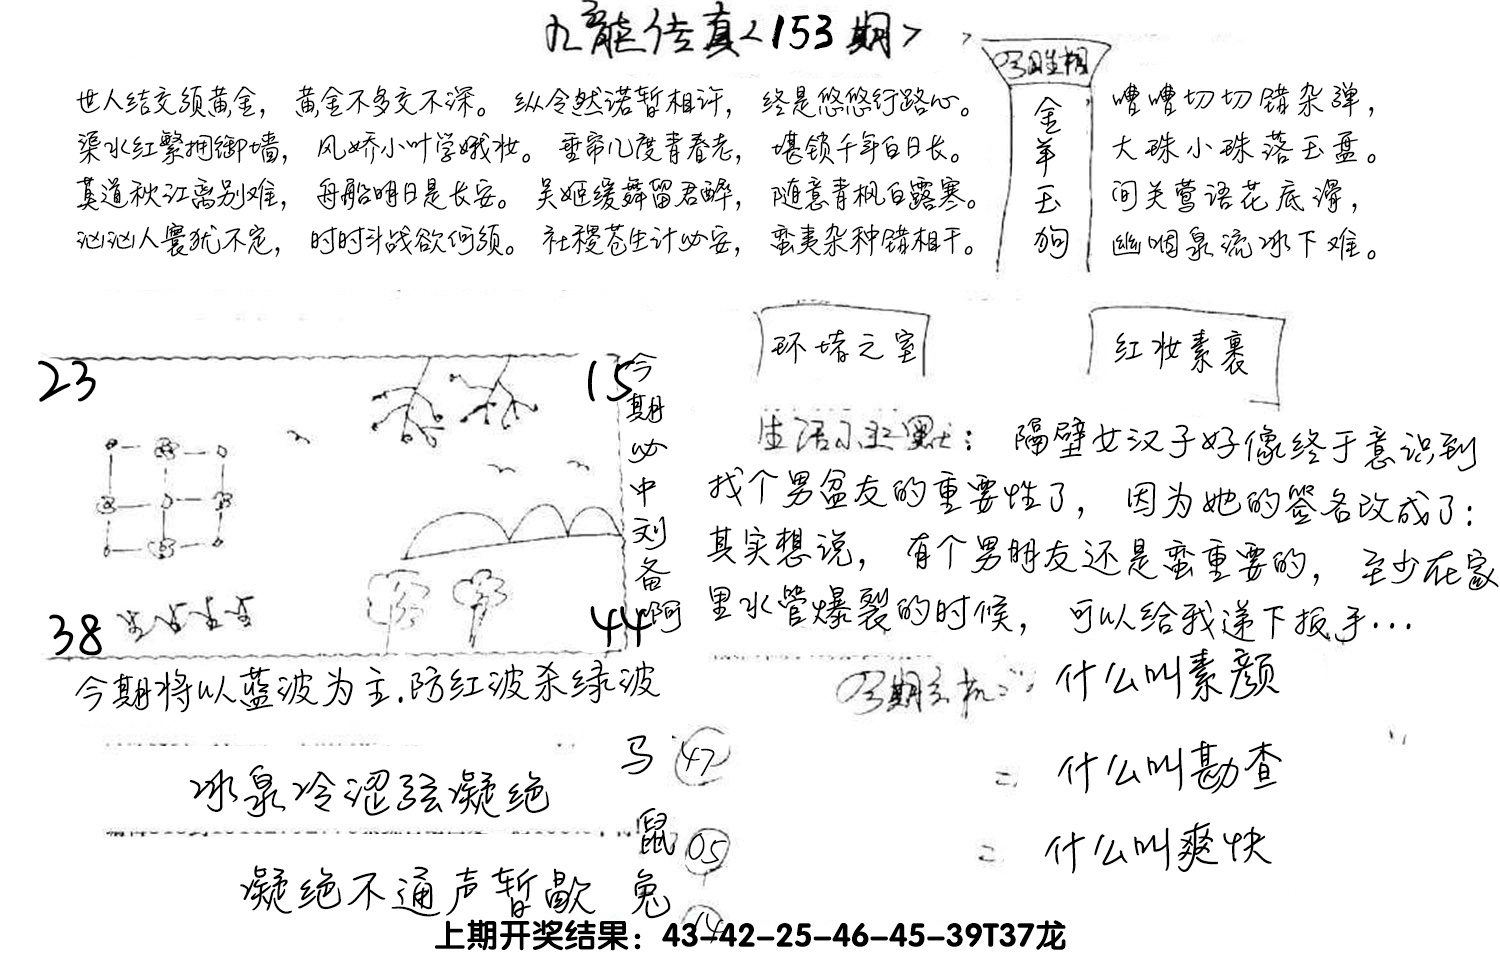 九龍传真<153期>
世人结交须黄金，黄金不多交不深。纵令然诺暂相许，终是悠悠行路心。
渠水红繁拥御墙，风娇小叶学娥妆。垂帘几度青春老，堪锁千年白日长。
莫道秋江离别难，舟船明日是长安。吴姬缓舞留君醉，随意青枫白露寒。
汹汹人寰犹不定，时时斗战欲何须。社稷苍生计必安，蛮夷杂种错相干。
今日生相
金羊玉狗
嘈嘈切切错杂弹，
大珠小珠落玉盘。
间关莺语花底滑，
幽咽泉流冰下难。
23
15
38
44
今期必中刘备啊
今期将以蓝波为主.防红波杀绿波
环堵之室
红妆素裹
生活小幽默：隔壁女汉子好像终于意识到
找个男盆友的重要性了，因为她的签名改成了：
其实想说，有个男朋友还是蛮重要的，至少在家
里水管爆裂的时候，可以给我递下扳手…
今期玄机：什么叫素颜
= 什么叫勘查
= 什么叫爽快
冰泉冷涩弦凝绝
凝绝不通声暂歇
马 47
鼠 05
兔 14
上期开奖结果：43-42-25-46-45-39T37龙